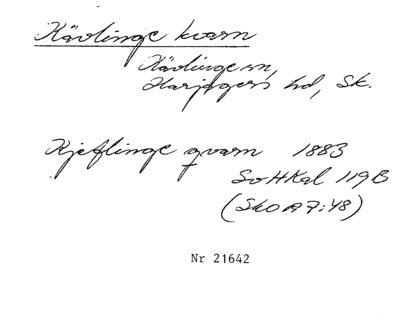 Kävlinge kvarn
Kävlinge sn,
Harjagers hd, Sk.
Kjeflinge qvarn 1883
SvHKal 119B
(SkO A7:48)
Nr 21642